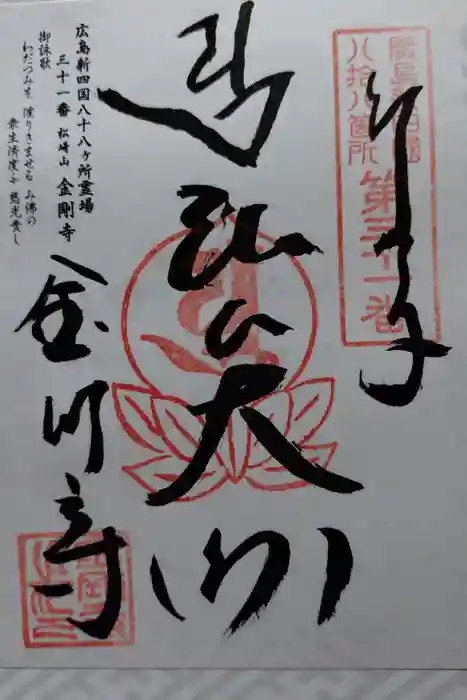 廣島新四国
八拾八箇所
第三十一番
弘法大師
広島新四国八十八ヶ所霊場
三十一番 松崎山 金剛寺
御詠歌
わだつみを 渡りきませる み佛の
衆生済度 慈光貴し
金剛寺